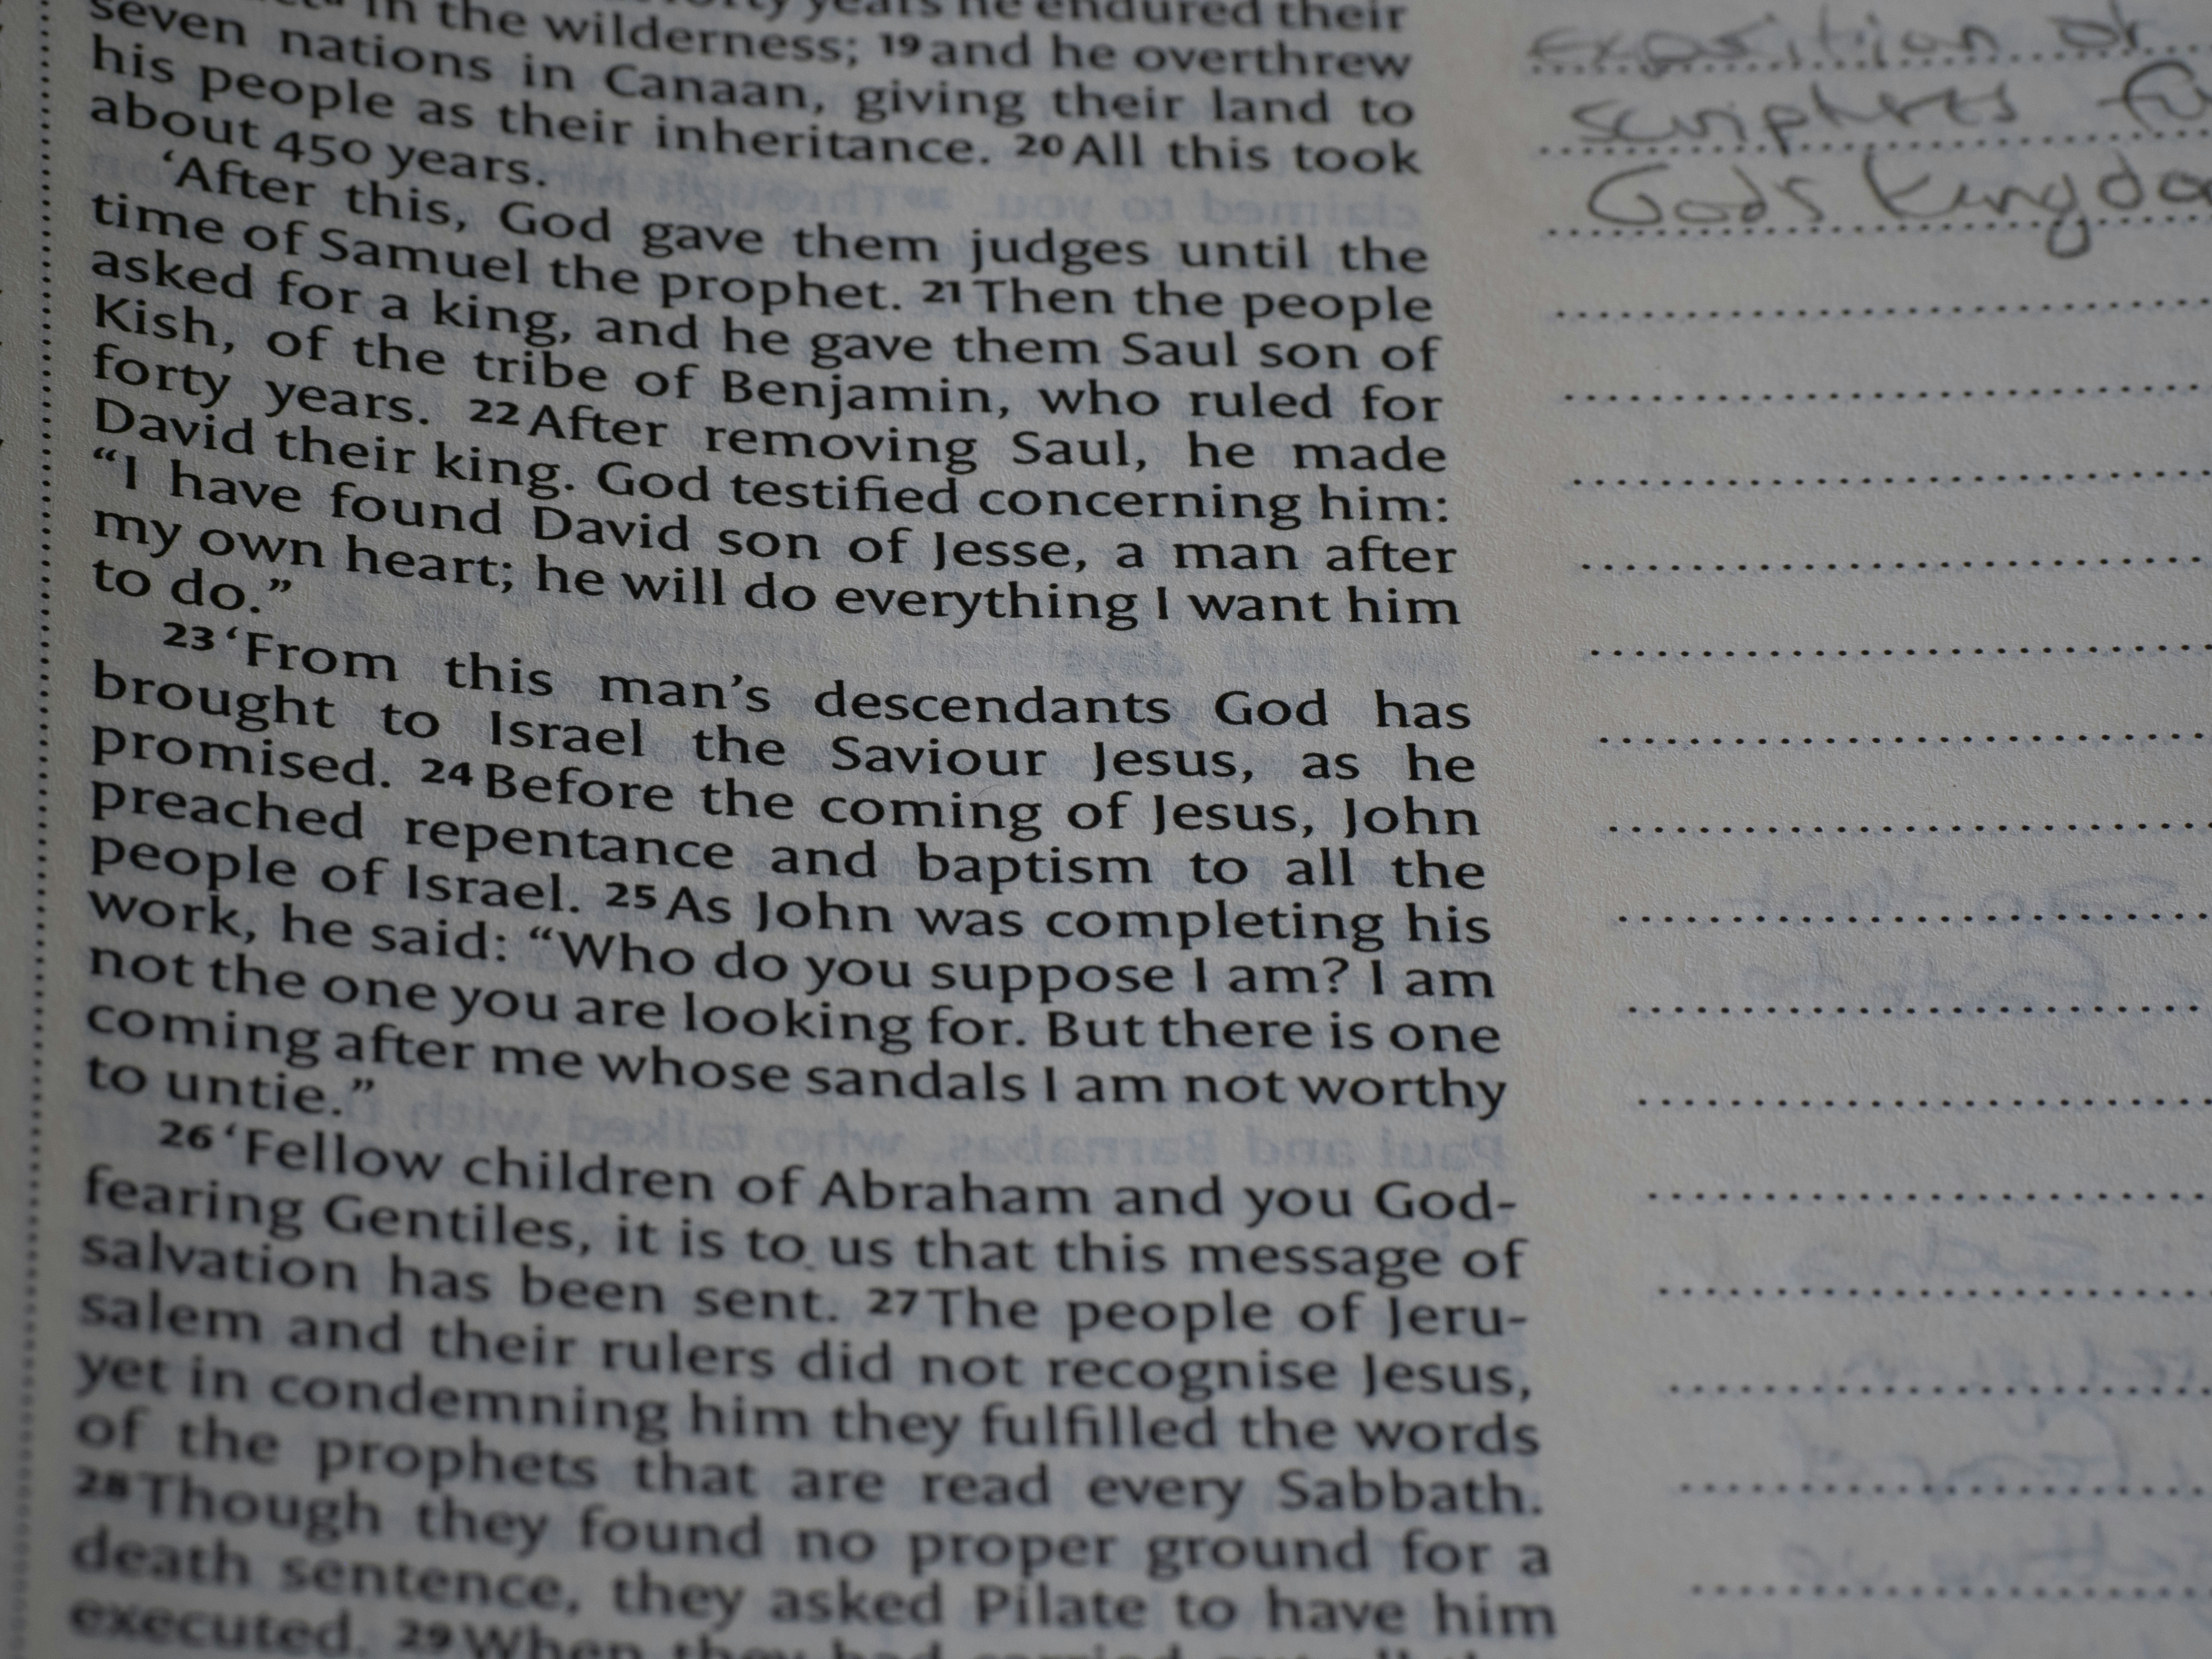 in the wilderness; ¹⁹and he overthrew
seven nations in Canaan, giving their land to
his people as their inheritance. ²⁰All this took
about 450 years.
‘After this, God gave them judges until the
time of Samuel the prophet. ²¹Then the people
asked for a king, and he gave them Saul son of
Kish, of the tribe of Benjamin, who ruled for
forty years. ²²After removing Saul, he made
David their king. God testified concerning him:
“I have found David son of Jesse, a man after
my own heart; he will do everything I want him
to do.”
²³‘From this man’s descendants God has
brought to Israel the Saviour Jesus, as he
promised. ²⁴Before the coming of Jesus, John
preached repentance and baptism to all the
people of Israel. ²⁵As John was completing his
work, he said: “Who do you suppose I am? I am
not the one you are looking for. But there is one
coming after me whose sandals I am not worthy
to untie.”
²⁶‘Fellow children of Abraham and you God-
fearing Gentiles, it is to us that this message of
salvation has been sent. ²⁷The people of Jeru-
salem and their rulers did not recognise Jesus,
yet in condemning him they fulfilled the words
of the prophets that are read every Sabbath.
²⁸Though they found no proper ground for a
death sentence, they asked Pilate to have him
executed. ²⁹When they had carried
exposition of
Gods